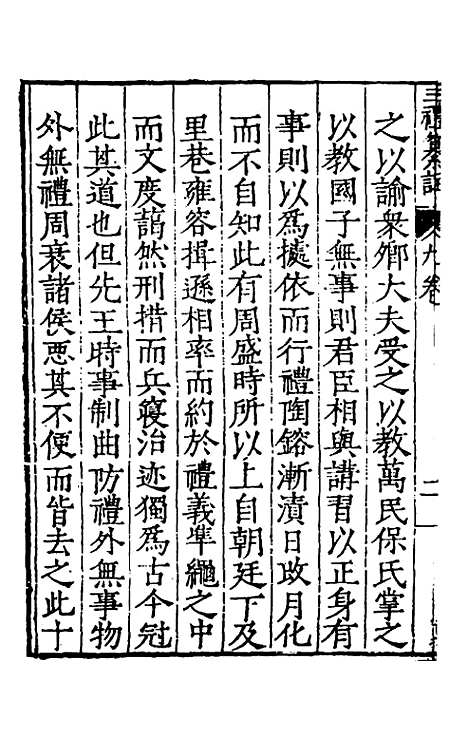 三禮纂註 九卷 二
之以諭衆鄉大夫受之以教萬民保氏掌之
以教國子無事則君臣相與講習以正身有
事則以爲據依而行禮陶鎔漸漬日改月化
而不自知此有周盛時所以上自朝廷下及
里巷雍容揖遜相率而約於禮義凖繩之中
而文度藹然刑措而兵寢治迹獨爲古今冠
此其道也但先王時事制曲防禮外無事物
外無禮周衰諸侯惡其不便而皆去之此十